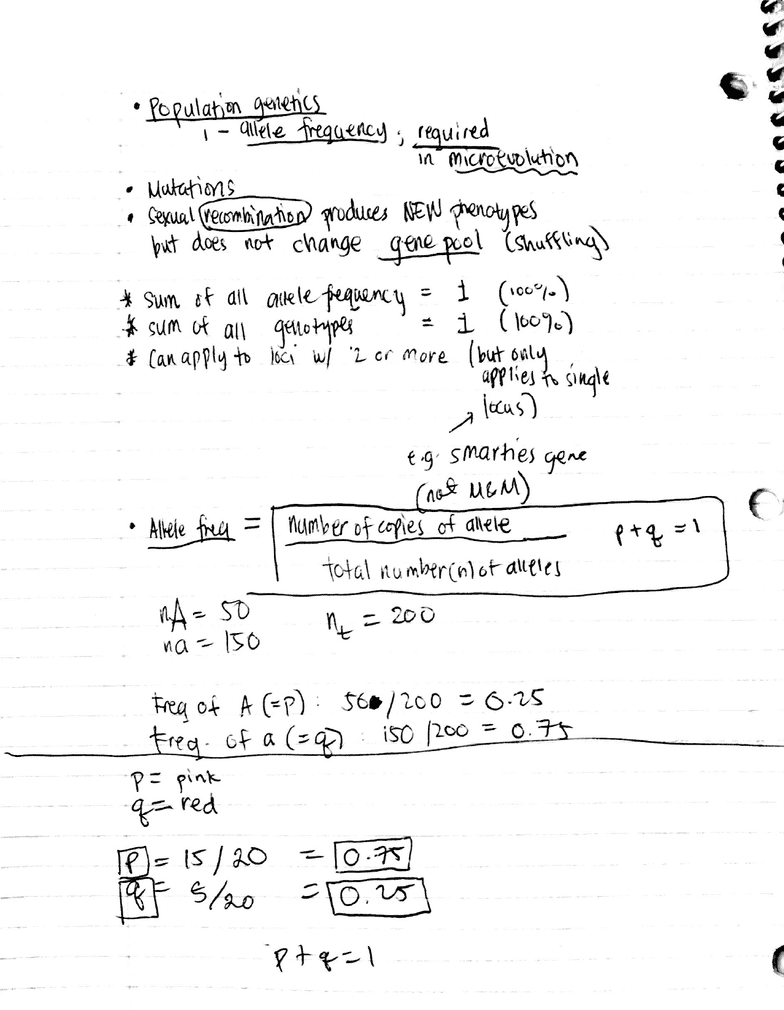 • Population genetics
1 - allele frequency ; required
in microevolution
• Mutations
• Sexual recombination produces NEW phenotypes
but does not change gene pool (shuffling)
* sum of all allele frequency = 1 (100%)
* sum of all genotypes = 1 (100%)
* Can apply to loci w/ 2 or more (but only
applies to single
locus)
e.g. smarties gene
(not M&M)
• Allele freq = number of copies of allele p+q = 1
total number(n) of alleles
nA = 50 nt = 200
na = 150
Freq of A (=p) : 50/200 = 0.25
Freq. of a (=q) : 150/200 = 0.75
p = pink
q = red
p = 15/20 = 0.75
q = 5/20 = 0.25
p+q=1